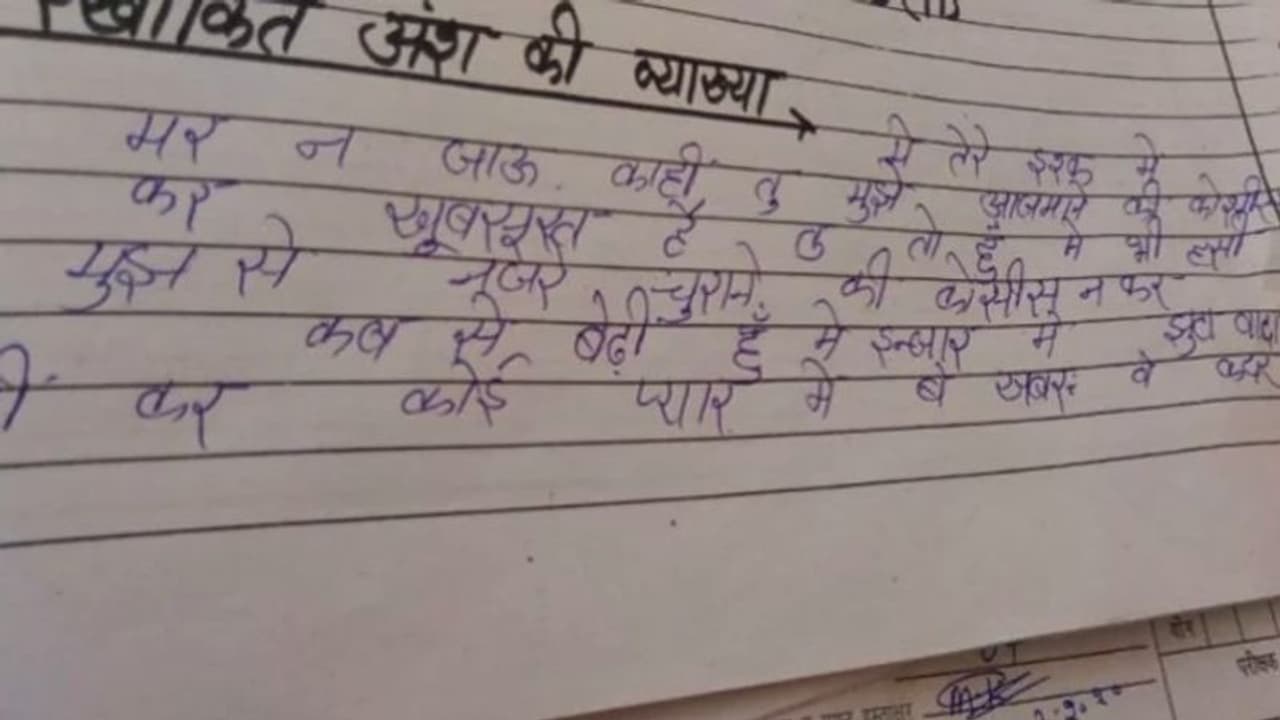 रेखांकित अंश की व्याख्या
मर न जाऊ काही मे तेरे इश्क मे
तु मुझे आजमाने की कोसीस
कर खूबसूरत है तु तो हूँ मे भी हसी
मुझ से नजरे चुराने की कोसीस न कर
कब से बेठी हूँ मे इन्जार मे झुठा वादा
ही कर कोई प्यार मे बे खबर वे कर